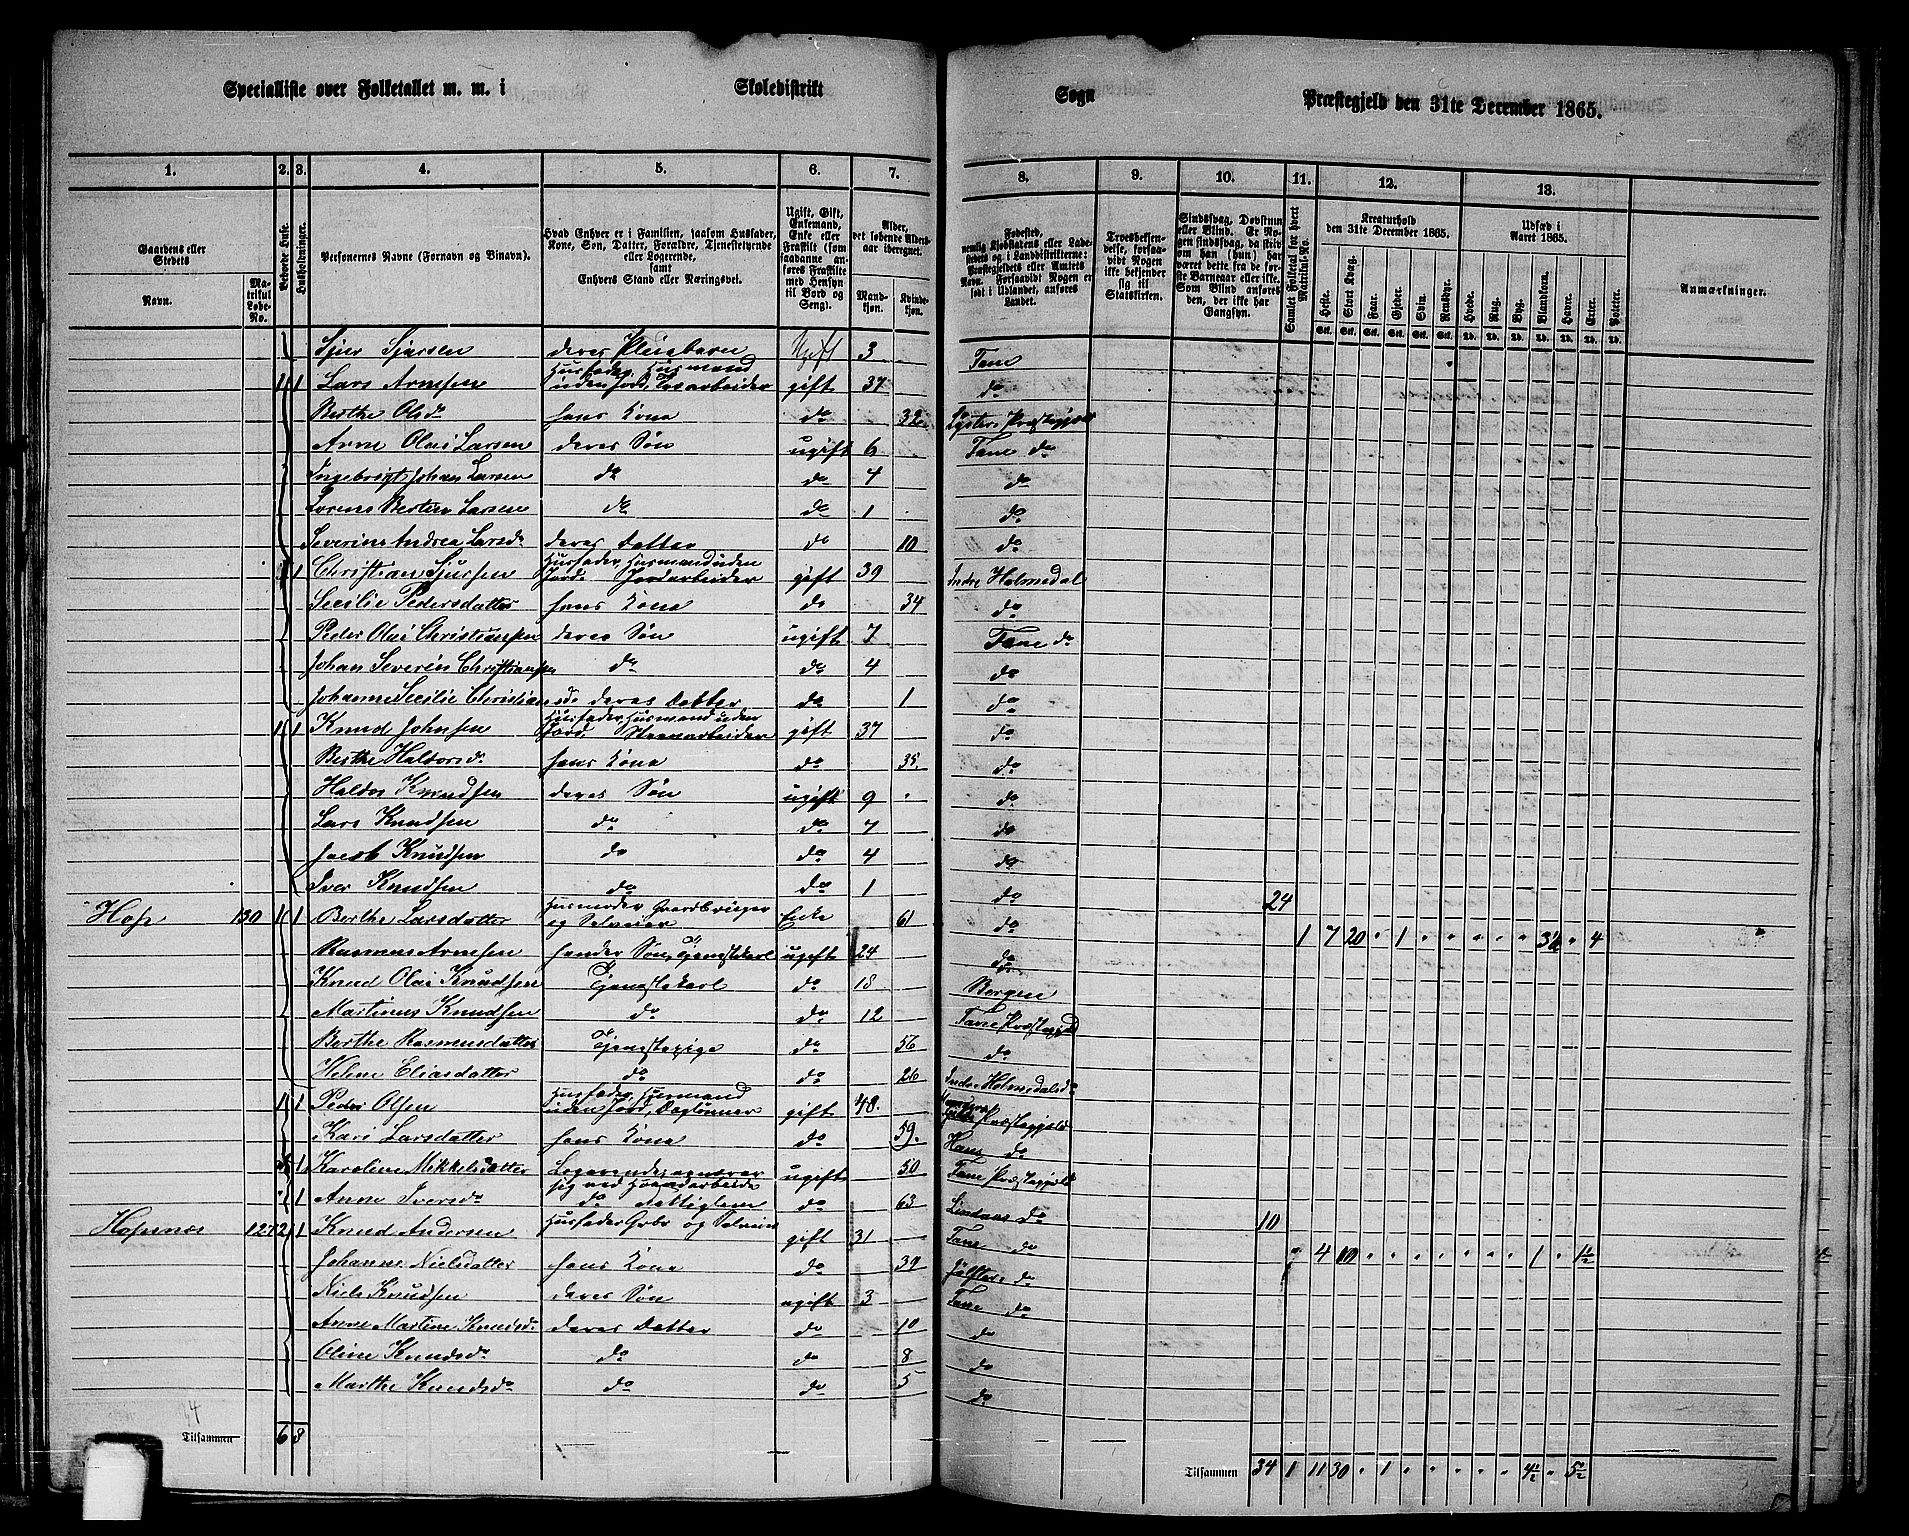 Specialliste over Folketallet m. m. i Skoledistrikt Sogn Præstegjeld den 31te December 1865.
1. 2. 3. 4. 5. 6. 7. 8. 9. 10. 11. 12. 13.
Gaardens eller Stedets Navn. Matrikul Løbe-No.
Beboede Huse.
Husholdninger.
Personernes Navne (Fornavn og Binavn).
Hvad Enhver er i Familien, saasom Husfader, Kone, Søn, Datter, Forældre, Tjenestetyende eller Logerende, samt Enhvers Stand eller Næringsvei.
Ugift, Gift, Enkemand, Enke eller Fraskilt (som saadanne anføres Fraskilte med Hensyn til Bord og Seng).
Alder, det løbende Aldersaar iberegnet. Mandkjøn. Kvindekjøn.
Fødested, nemlig Kjøbstadens eller Ladestedets og i Landdistrikterne: Præstegjeldets eller Amtets Navn. Forsaavidt Nogen er født i Udlandet, anføres Landet.
Troesbekjendelse, forsaavidt Nogen ikke bekjender sig til Statskirken.
Sindssvag, Døvstum eller Blind. Er Nogen sindssvag, da skriv om han (hun) har været dette fra de første Barneaar eller ikke. Som Blind anføres den, der ikke har Gangsyn.
Samlet Folketal for hvert Matrikul-No.
Kreaturhold den 31te December 1865. Heste. Stort Kvæg. Faar. Gjeder. Svin. Rensdyr.
Udsæd i Aaret 1865. Hvede. Rug. Byg. Blandkorn. Havre. Erter. Poteter.
Anmærkninger.
Sjur Sjursen deres Pleiebarn Ugift 3 Fane
1 1 Lars Arnesen Husfader, Husmand uden Jord, Jordarbeider gift 37 do
Berthe Olsdr hans Kona do 32 Lyster Præstegjeld
Arne Olai Larsen deres Søn ugift 6 Fane do
Ingebrigt Johan Larsen do do 4 do
Lorens Bertin Larsen do do 1 do
Severine Andrea Larsdr deres Datter do 10 do
1 1 Christian Sjursen Husfader, Husmand uden Jord, Jordarbeider gift 39 Indre Holmedal
Secilie Pedersdatter hans Kona do 34 do
Peder Olai Christiansen deres Søn ugift 7 Fane do
Johan Severin Christiansen do do 4 do
Johanne Secilie Christiansdr deres Datter do 1 do
1 1 Knud Johnsen Husfader, Husmand uden Jord, Steenarbeider gift 37 do
Berthe Haldorsdr hans Kona do 35 do
Haldor Knudsen deres Søn ugift 9 do
Lars Knudsen do do 7 do
Jacob Knudsen do do 4 do
Iver Knudsen do do 1 do 24
Hop 130 1 1 Berthe Larsdatter Husmoder Gaardbruger og Selveier Enke 61 do 1 7 20 1 4
Rasmus Arnesen hendes Søn, Tjenestekarl ugift 24 do
Knud Olai Knudsen Tjenestekarl do 18 Bergen
Martinus Knudsen do do 12 Fane Præstegjeld
Berthe Rasmusdatter Tjenestepige do 56 do
Helene Eliasdatter do do 26 Indre Holmedals do
1 1 Peder Olsen Husfader, Husmand uden Jord, Daglønner gift 48 Præstegjeld
Kari Larsdatter hans Kona do 59 Haus do
1 Karoline Mikkelsdatter Logerende, ernærer sig ved Haandarbeide ugift 50 Fane Præstegjeld
1 Anne Iversdr do Fattiglem do 63 Lindaas do 10
Hopsnes 127 2 1 Knud Andersen Husfader Grbr og Selveier gift 31 Fane do 4 10 1 1½
Johanne Nielsdatter hans Kona do 39 Jølster do
Niels Knudsen deres Søn ugift 3 Fane do
Anne Martine Knudsdr deres Datter do 10 do
Oline Knudsdr do do 8 do
Marthe Knudsdr do do 5 do
Tilsammen 6 8
Tilsammen 34 1 11 30 1 4½ 5½